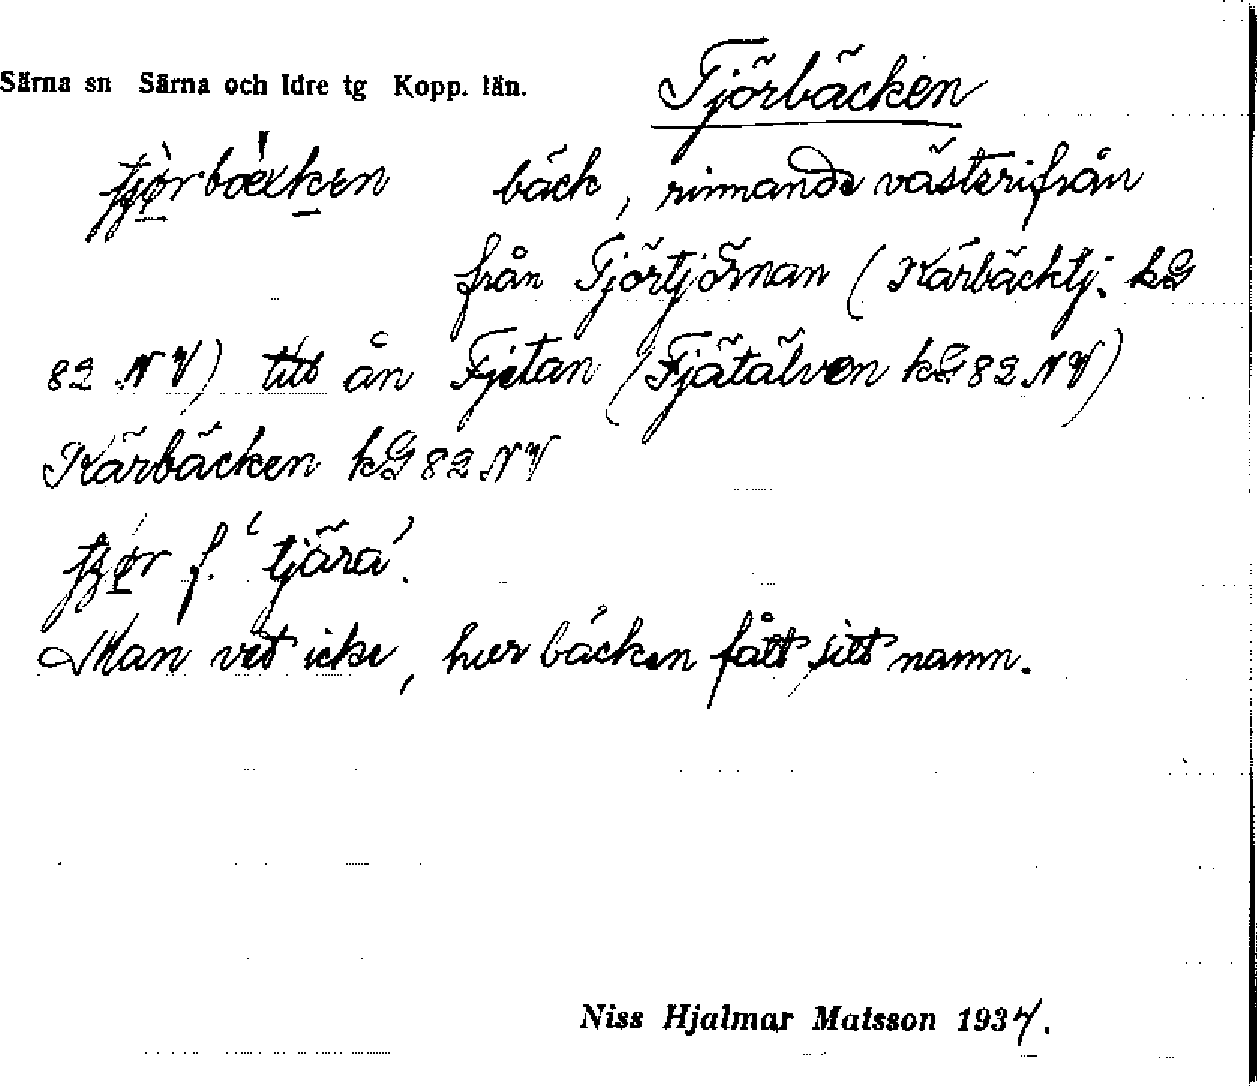 Särna sn Särna och Idre tg Kopp. län.
Tjörbäcken
bäck, rinnande västerifrån
från Tjörtjörnan (Kärbäcktj. kG
82 NV) till ån Fjetan (Fjätälven kG 82 NV)
Kärbäcken kG 82 NV
f. 'tjära'.
Man vet icke, hur bäcken fått sitt namn.
Niss Hjalmar Matsson 1937.